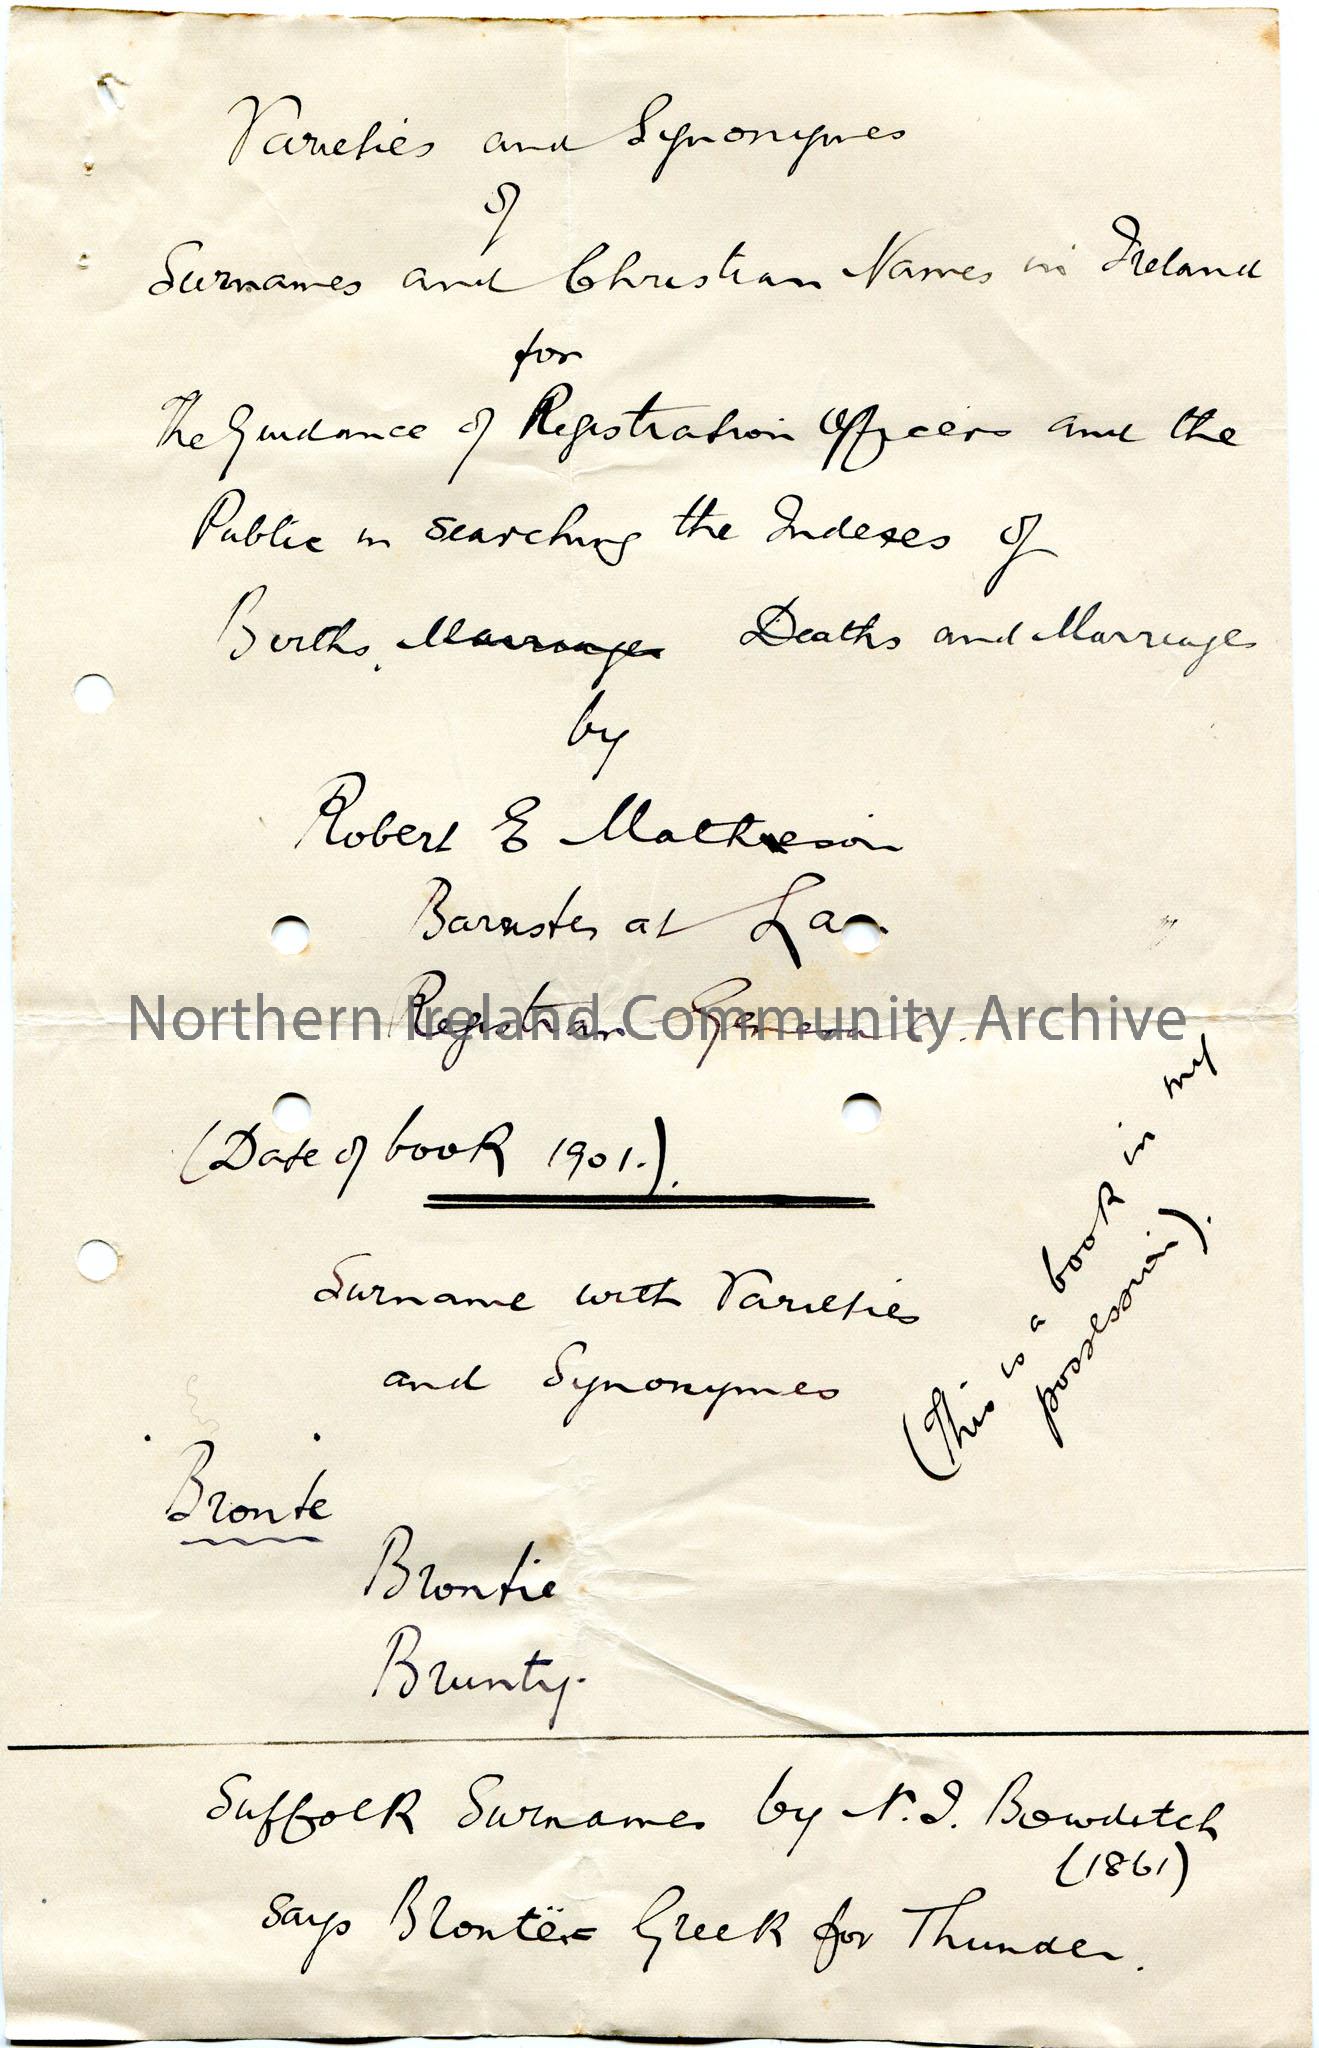 Varieties and Synonymes
of
Surnames and Christian Names in Ireland
for
The Guidance of Registration Officers and the
Public in searching the Indexes of
Births, Marriages Deaths and Marriages
by
Robert E Matheson
Barrister at La
Registrar General.
Northern Ireland Community Archive
(Date of book 1901.).
(This is a book in my
possession).
Surname with Varieties
and Synonymes
Bronte
Brontie
Brunty.
Suffolk Surnames by N. I. Bowditch
(1861)
says Brontë = Greek for Thunder.